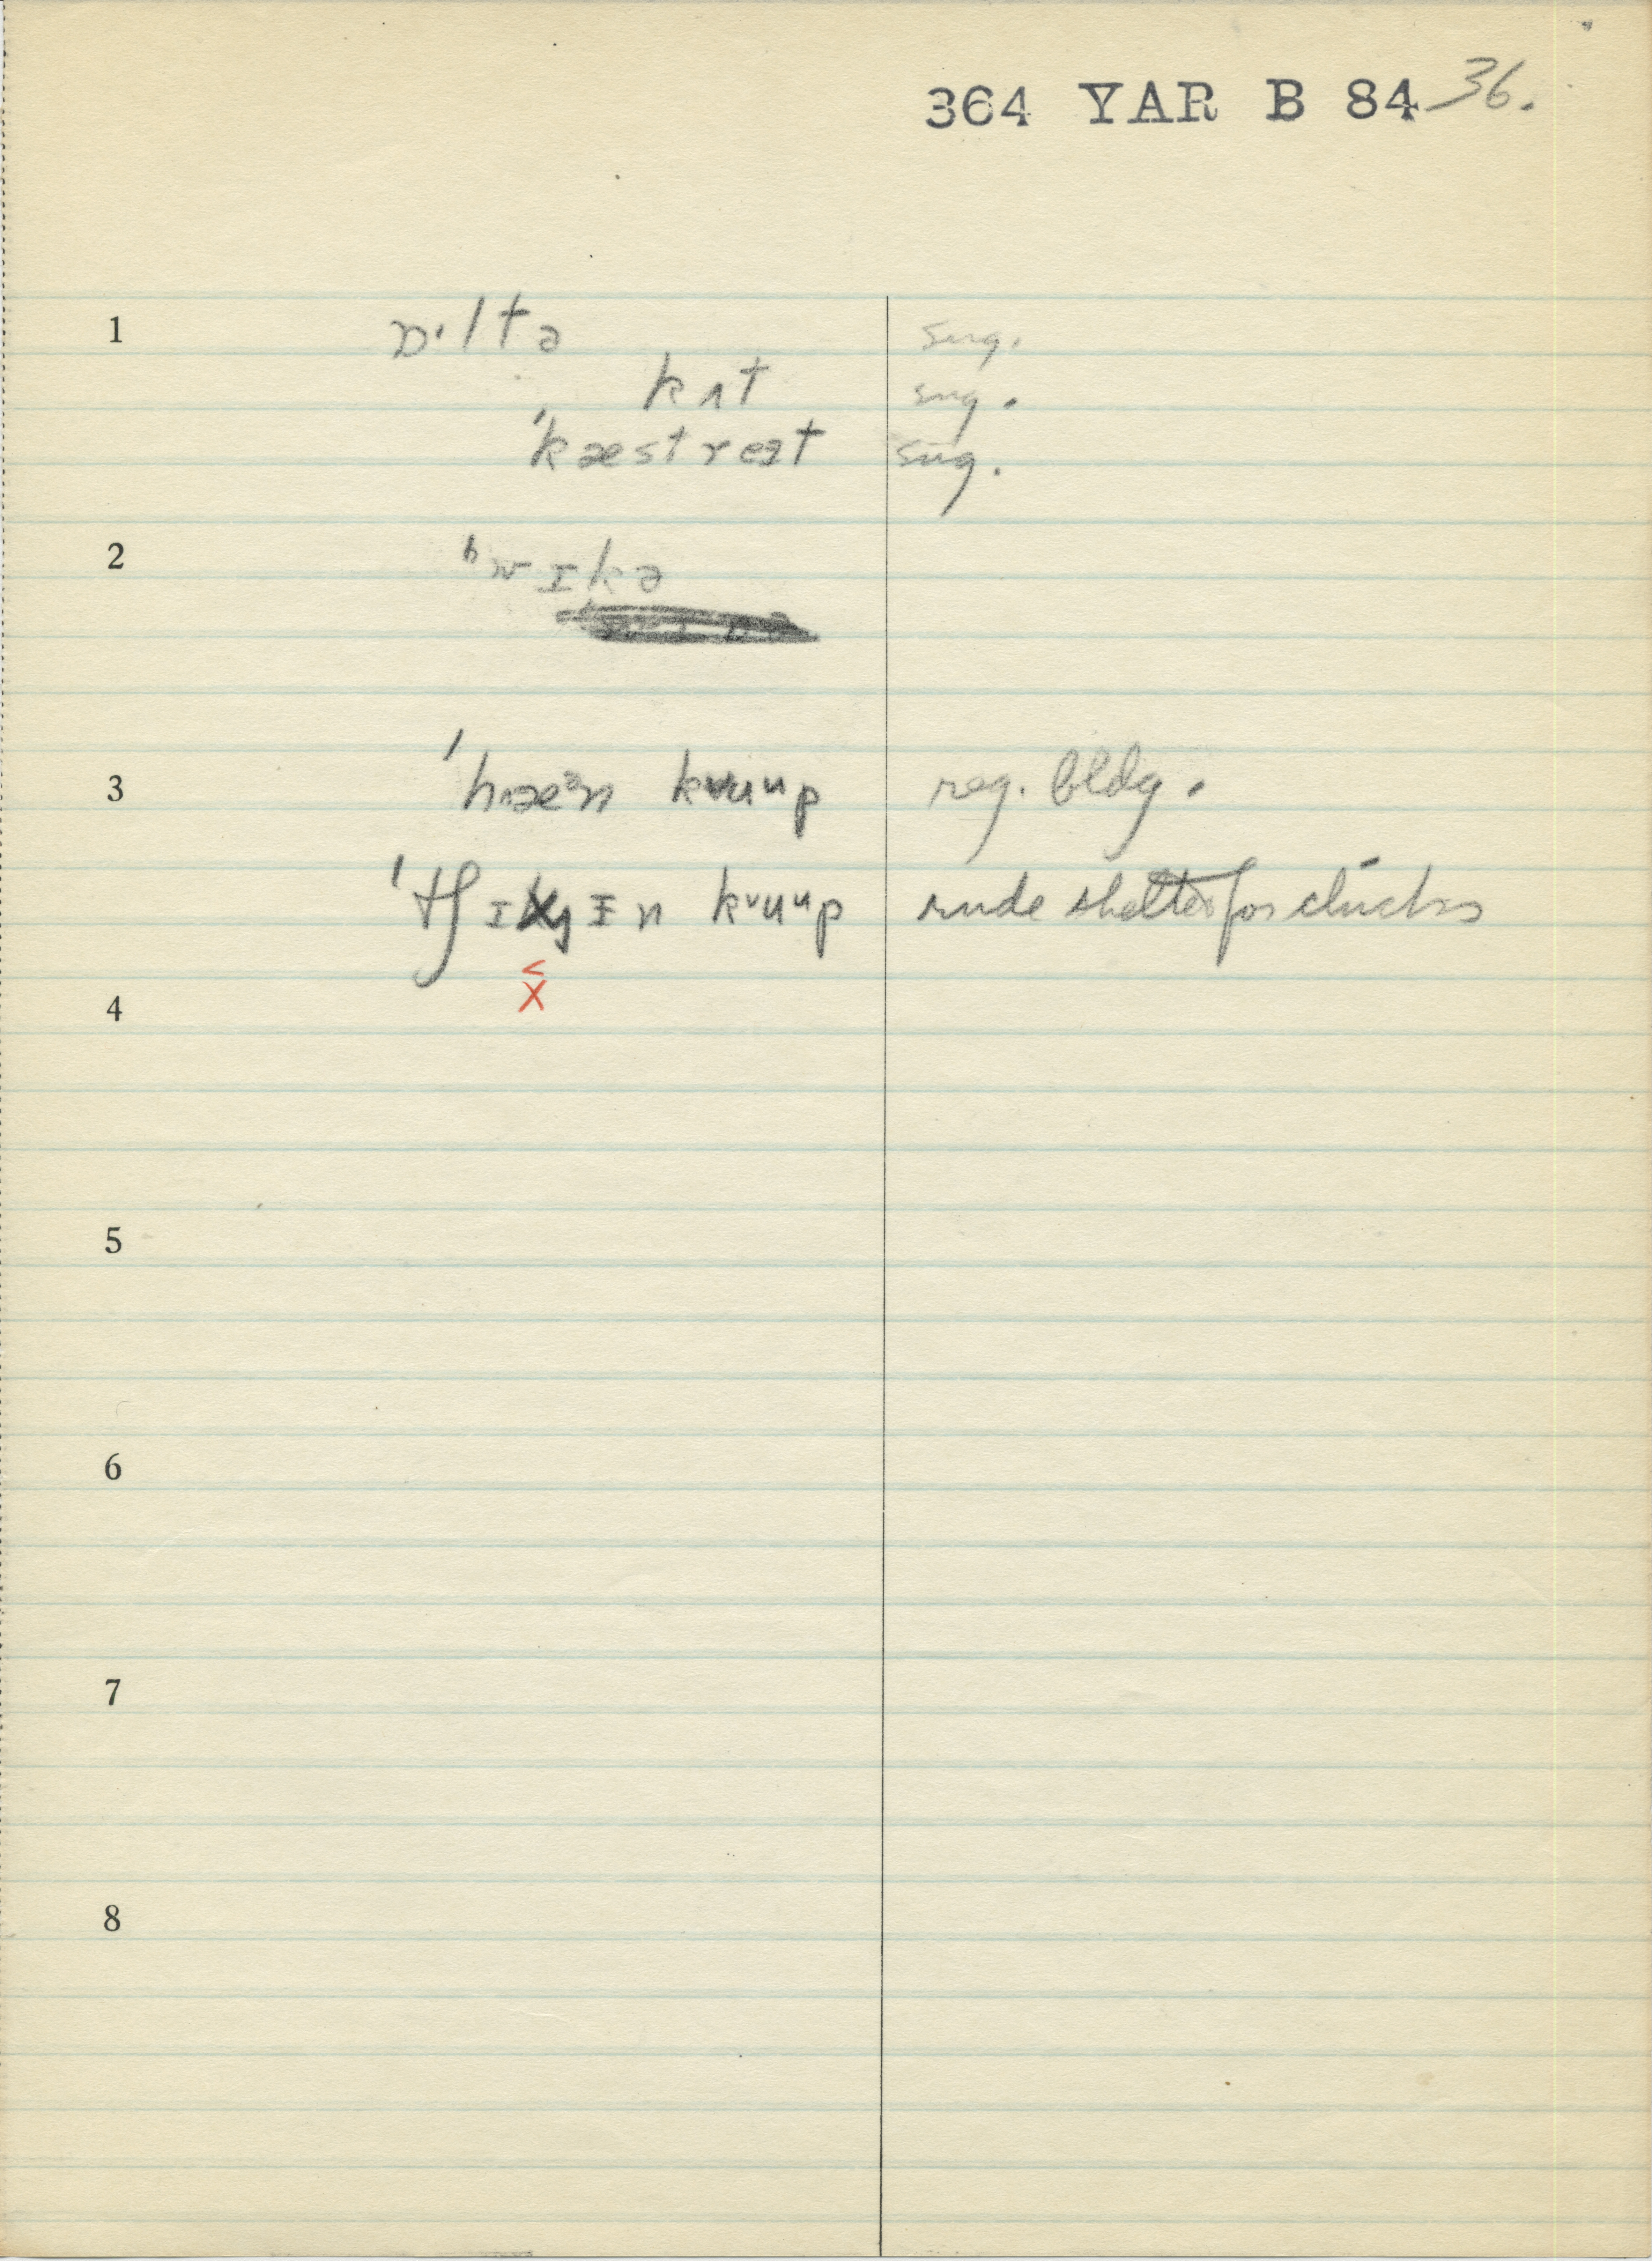 364 YAR B 84 36.
1 ɒ·ltə sug.
kʌt sug.
ˈkæstreət sug.
2 ʰwɪkə
3 ˈhæᵊn kvuᵘp reg. bldg.
ˈtʃɪ yɪn kᵛuᵘp rude shelter for chicks
<
x
4
5
6
7
8